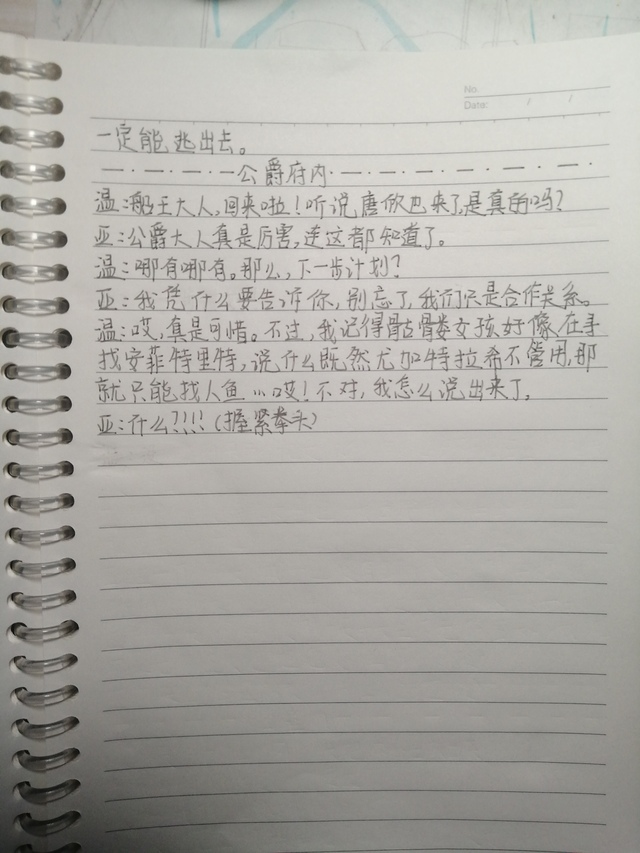 No.
Date: / /
一定能逃出去。
—·—·—·—公爵府内·—·—·—·—·—
温:船王大人,回来啦!听说唐依巴来了,是真的吗?
亚:公爵大人真是厉害,连这都知道了。
温:哪有哪有。那么,下一步计划?
亚:我凭什么要告诉你,别忘了,我们只是合作关系。
温:哎,真是可惜。不过,我记得骷髅女孩好像在寻
找安菲特里特,说什么既然尤加特拉希不管用,那
就只能找人鱼…哎!不对,我怎么说出来了。
亚:什么?!!!(握紧拳头)